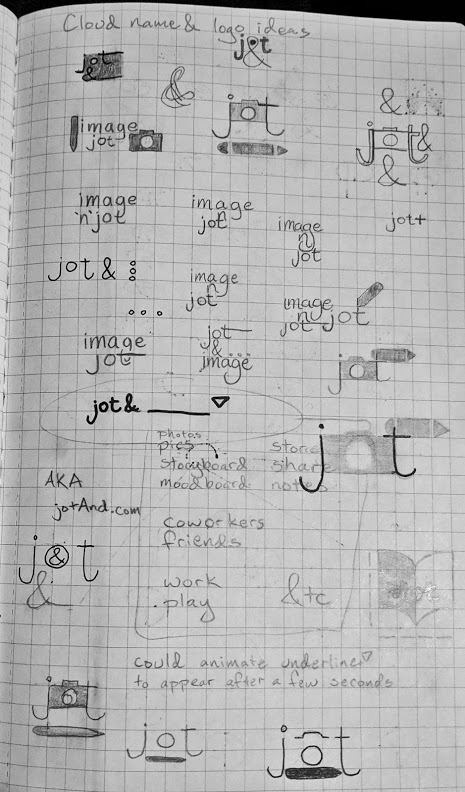 Cloud name & logo ideas
jot
&
jot
&
&
jot
&
jot &
&
image
jot
image
'n' jot
image
jot
n
image
n
jot
jot+
jot &
image
n
jot
image
n jot
jot
image
jot
jot
&
image
jot
jot & ______
photos
pics
storyboard
moodboard
store
share
notes
jot
AKA
jotAnd.com
coworkers
friends
j&t
&
work
play
&tc
jot
could animate underline
to appear after a few seconds
jot
jot
jot